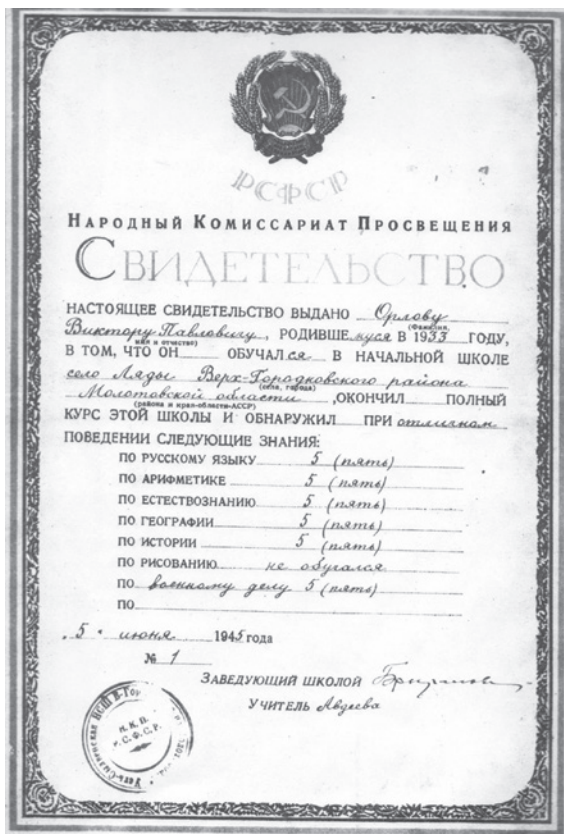 РСФСР
НАРОДНЫЙ КОМИССАРИАТ ПРОСВЕЩЕНИЯ
СВИДЕТЕЛЬСТВО
НАСТОЯЩЕЕ СВИДЕТЕЛЬСТВО ВЫДАНО Орлову
(фамилия,
Виктору Павловичу, РОДИВШЕмуся В 1933 ГОДУ,
имя и отчество)
В ТОМ, ЧТО ОН ОБУЧАЛся В НАЧАЛЬНОЙ ШКОЛЕ
село Ляды Верх-Городковского района
(села, города)
Молотовской области, ОКОНЧИЛ ПОЛНЫЙ
(района и края-области-АССР)
КУРС ЭТОЙ ШКОЛЫ И ОБНАРУЖИЛ ПРИ отличном
ПОВЕДЕНИИ СЛЕДУЮЩИЕ ЗНАНИЯ:
ПО РУССКОМУ ЯЗЫКУ 5 (пять)
ПО АРИФМЕТИКЕ 5 (пять)
ПО ЕСТЕСТВОЗНАНИЮ 5 (пять)
ПО ГЕОГРАФИИ 5 (пять)
ПО ИСТОРИИ 5 (пять)
ПО РИСОВАНИЮ не обучался
ПО военному делу 5 (пять)
ПО
"5" июня 1945 года
№ 1
ЗАВЕДУЮЩИЙ ШКОЛОЙ
УЧИТЕЛЬ Авдеева
Н.К.П.
Р.С.Ф.С.Р.